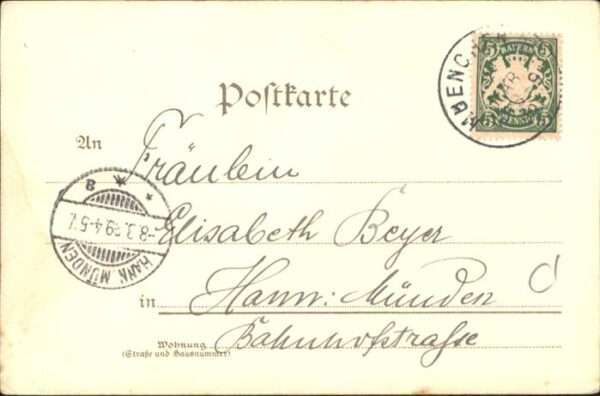 5 BAYERN 5
5 PFENNIG 5
MUENCHEN
Postkarte
An
Fräulein
Elisabeth Beyer
in Hann: Münden
Wohnung
(Straße und Hausnummer)
Bahnhofstraße
HANN. MÜNDEN
-8.3. 99.4-5 N.